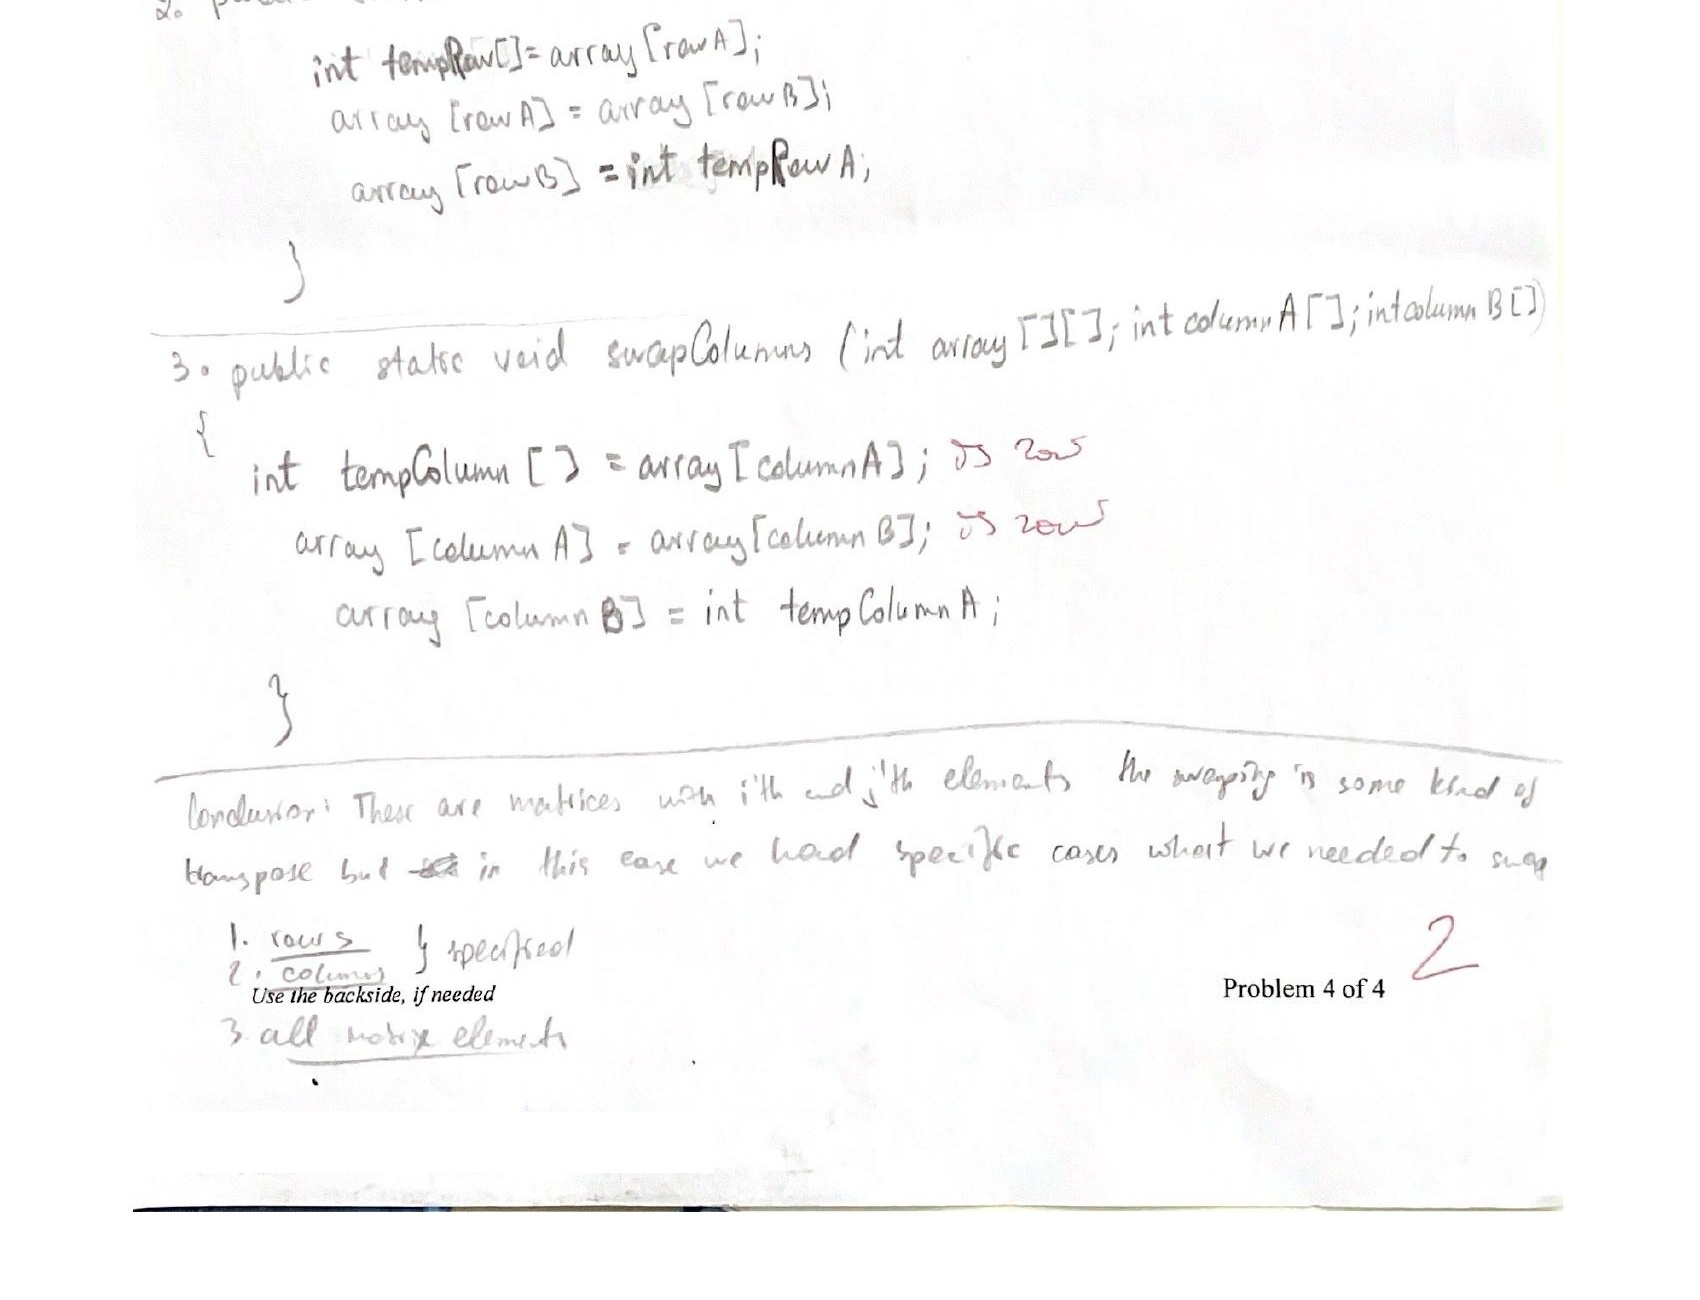 2.
int tempRow[]= array [rowA];
array [rowA] = array [rowB];
array [rowB] = int tempRow A;
}
3. public static void swapColumns (int array [][]; int column A[]; int column B[])
{
int tempColumn [] = array [columnA]; is row
array [column A] = array [column B]; is row
array [column B] = int temp Column A;
}
Conclusion: These are matrices with i'th and j'th elements the swaping is some kind of
transpose but in this case we had specific cases what we needed to swap
1. rows } specified
2. columns
Use the backside, if needed
Problem 4 of 4
2
3. all matrix elements